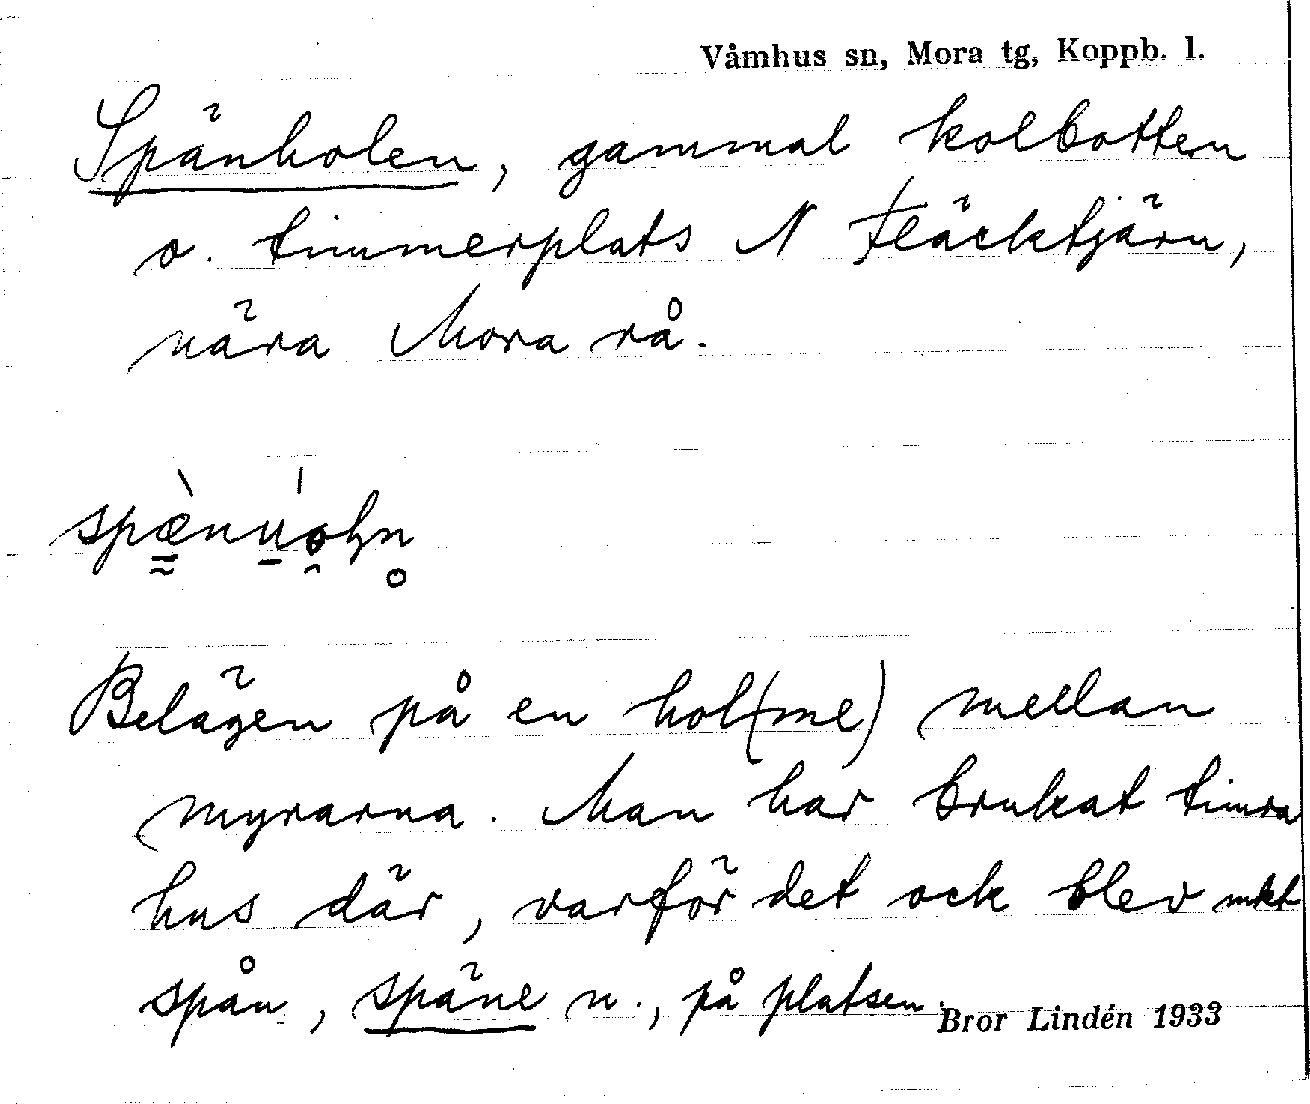 Våmhus sn, Mora tg, Koppb. l.
Spänholen, gammal kolbotten
o. timmerplats N Fläcktjärn,
nära Mora rå.
Belägen på en hol(me) mellan
myrarna. Man har brukat timra
hus där, varför det ock blev mkt
spån, späne n., på platsen.
Bror Lindén 1933